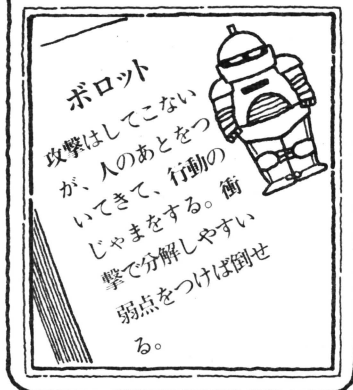 ボロット
攻撃はしてこない
が、人のあとをつ
いてきて、行動の
じゃまをする。衝
撃で分解しやすい
弱点をつけば倒せ
る。